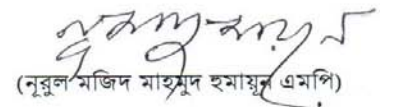 (নূরুল মজিদ মাহমুদ হুমায়ূন এমপি)